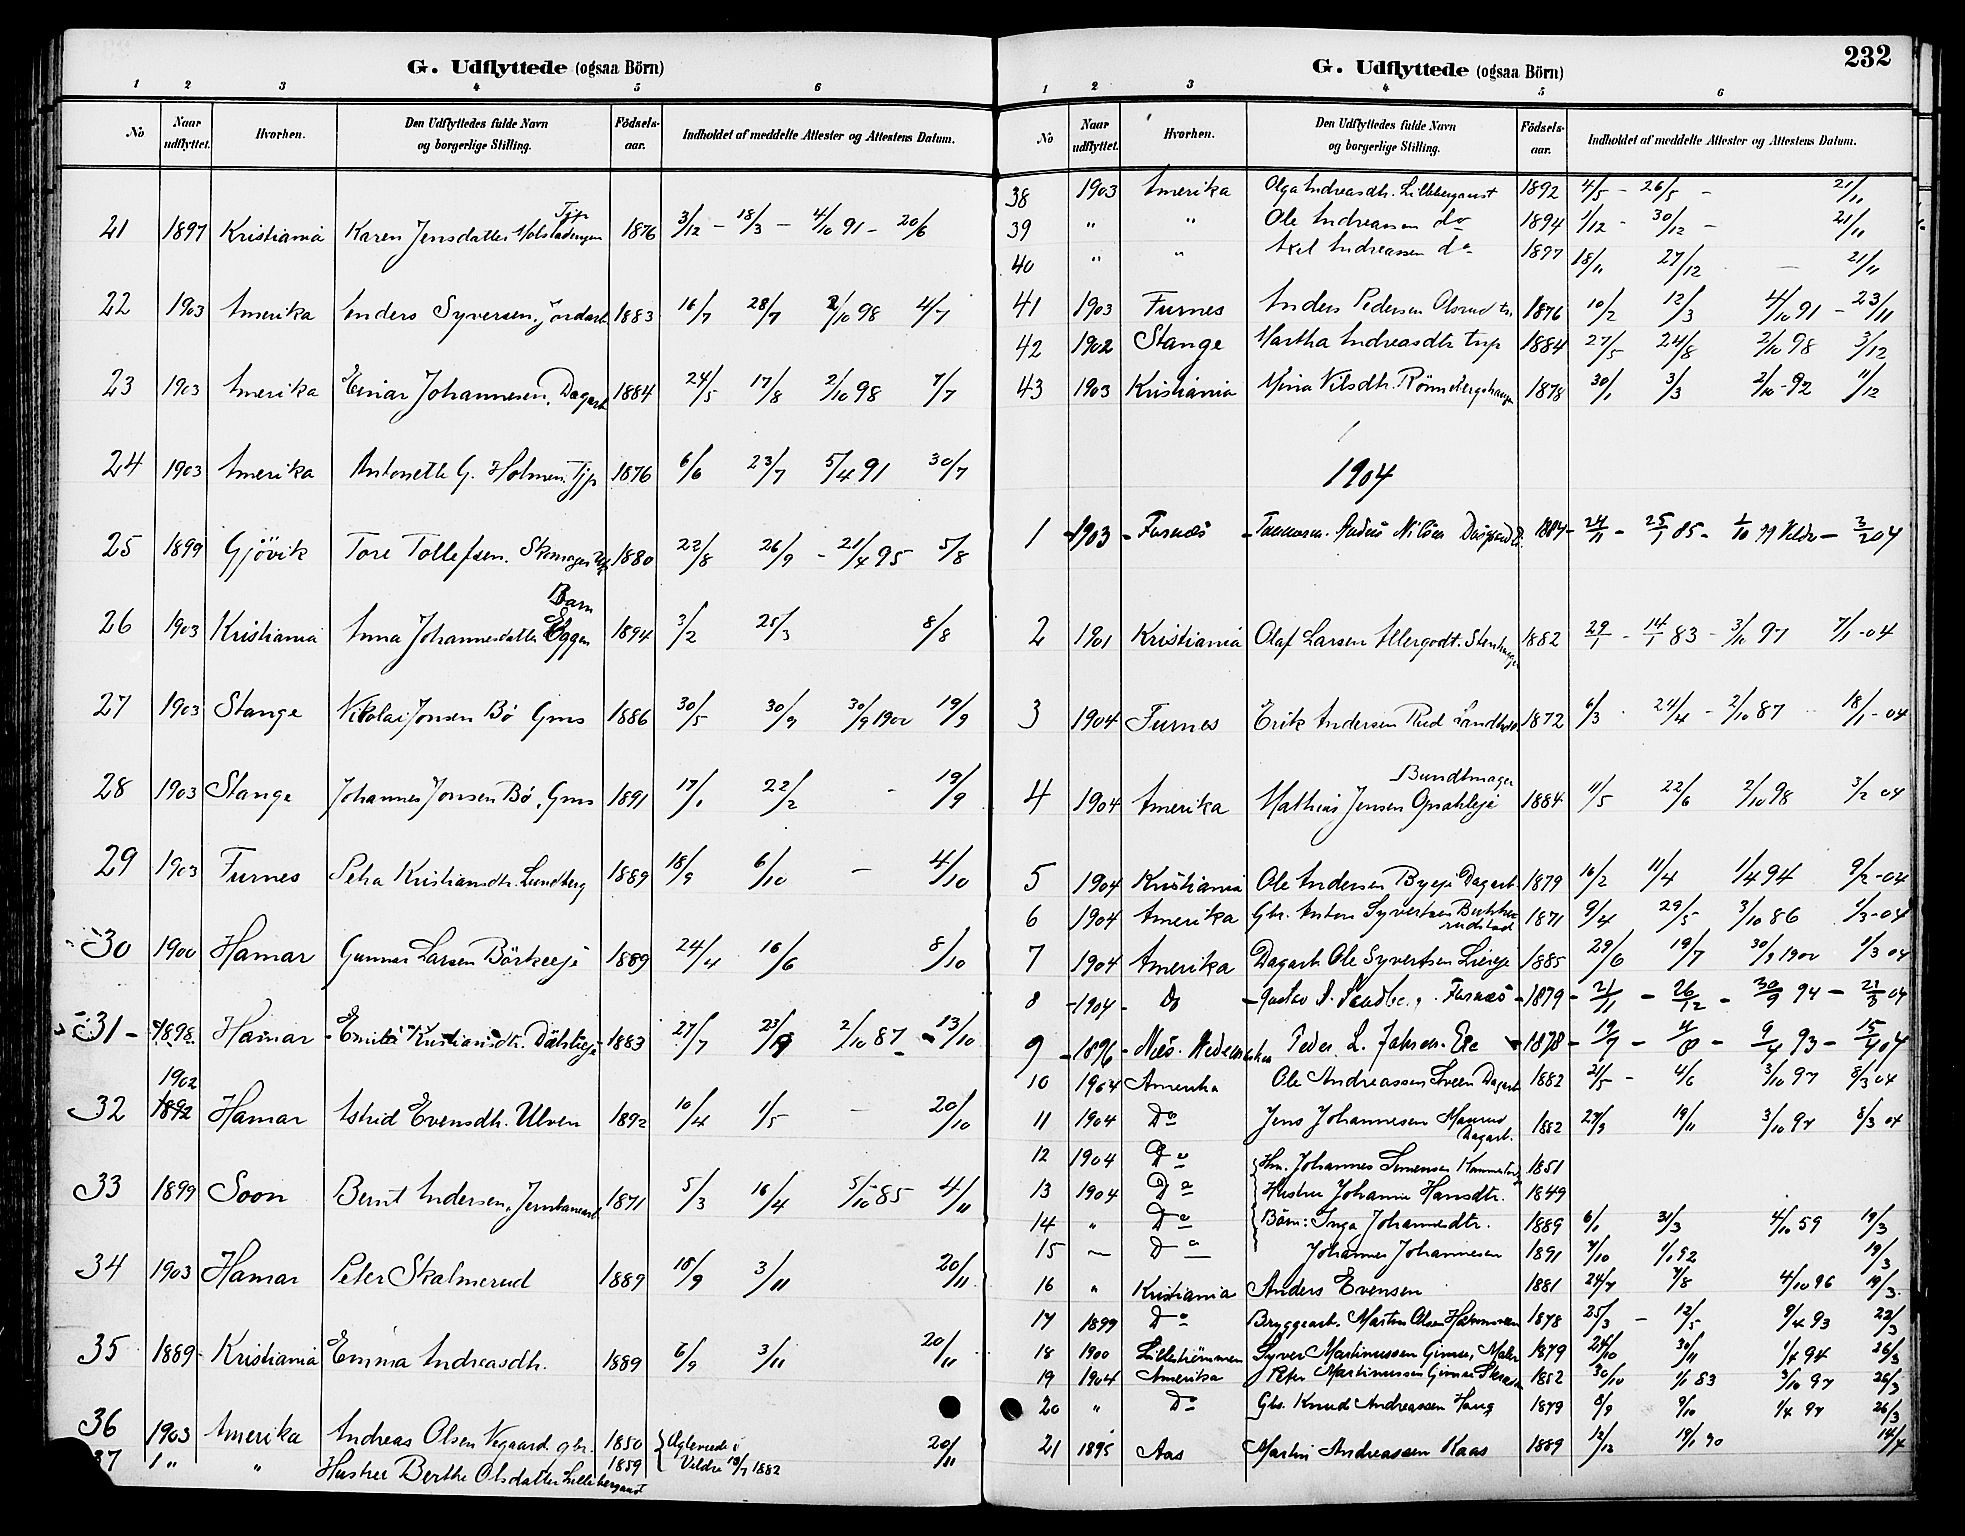 G. Udflyttede (ogsaa Börn)
1 2 3 4 5 6
No Naar udflyttet. Hvorhen. Den Udflyttedes fulde Navn og borgerlige Stilling. Fødsels-aar. Indholdet af meddelte Attester og Attestens Datum.
21 1897 Kristiania Karen Jensdatter Tjp 1876 3/12 - 18/3 - 4/10 91 - 20/6
22 1903 Amerika Anders Syversen, jordarb. 1883 16/7 28/7 2/10 98 4/7
23 1903 Amerika Einar Johannesen, Dagarb 1884 24/5 17/8 2/10 98 7/7
24 1903 Amerika Antonette G. Holmen Tjp 1876 6/6 23/7 5/4 91 30/7
25 1899 Gjövik Tore Tollefsen. 1880 22/8 26/9 - 21/4 95 5/8
26 1903 Kristiania Anna Johannesdatter Eggen Barn 1894 3/2 25/3 8/8
27 1903 Stange Nikolai Jonsen Bø Gms 1886 30/5 30/9 30/9 1900 19/9
28 1903 Stange Johannes Jonsen Bø, Gms 1891 17/1 22/2 - 19/9
29 1903 Furnes Petra Kristiansdtr. Lundberg 1889 18/9 6/10 - 4/10
30 1900 Hamar Gunnar Larsen Börkeeje 1889 24/4 16/6 8/10
31 - 1898 Hamar - Emilie Kristiansdtr. 1883 27/7 23/9 2/10 87 - 13/10
32 1902 1892 Hamar Astrid Evensdtr. Ulven 1892 10/4 1/5 - 20/10
33 1899 Soon Bernt Andersen, Jernbanearb 1871 5/3 16/4 5/10 85 4/11
34 1903 Hamar Peter Skalmerud 1889 15/9 3/11 20/11
35 1889 - Kristiania Emma Andreasdtr. 1889 6/9 3/11 20/11
36 1903 Amerika Andreas Olsen Vegaard gbr. 1850 { Ægteviede i 20/11
37 " " Hustru Berthe Olsdatter Lillebergaust 1859 Veldre 18/7 1882
232
G. Udflyttede (ogsaa Börn)
1 2 3 4 5 6
No Naar udflyttet. Hvorhen. Den Udflyttedes fulde Navn og borgerlige Stilling. Fødsels-aar. Indholdet af meddelte Attester og Attestens Datum.
38 1903 Amerika Olga Andreasdtr. Lillebergaust 1892 4/5 - 26/5 - 21/11
39 " " Ole Andreassen do 1894 1/12 - 30/12 - 21/11
40 " " Axel Andreassen do 1897 18/11 27/12 - 21/11
41 1903 Furnes Anders Pedersen Olsrud 1876 10/2 12/3 4/10 91 - 23/11
42 1902 Stange Martha Andreasdtr tjp 1884 27/5 24/8 2/10 98 3/12
43 1903 Kristiania Mina Nilsdtr. Rönnebergshaugen 1878 30/1 3/3 2/10 - 92 11/12
1904
1 - 1903 - Furnæs - Anders Nilsen 1884 - 24/1 - 25/1 85 - 1/10 99 Veldre - 2/2 04
2 1901 Kristiania Olaf Larsen Allergodt. Stenhugger 1882 29/1 - 14/1 83 - 3/10 97 7/1 - 04
3 1904 Furnes Erik Andersen Rud 1872 6/3 24/4 - 2/10 87 18/1 - 04
4 1904 Amerika Mathias Jensen Bundtmager 1884 11/5 22/6 2/10 98 3/2 04
5 1904 Kristiania Ole Andersen Byeje Dagarb. 1879 16/2 11/4 1/4 94 9/2 - 04
6 1904 Amerika Gbr. Anton Syvertsen 1871 9/4 29/5 3/10 86 1/3 - 04
7 1904 Amerika Dagarb. Ole Syvertsen Lieeje 1885 29/6 19/7 30/9 1900 1/3 04
8 - 1904 - Do - Gustav Furnæs - 1879 - 21/11 - 26/12 - 30/9 94 - 21/3 04
9 - 1896 - Næs. Hedemarken Peder L. Johnsen 1878 - 19/7 - 11/8 - 9/4 93 - 15/4 04
10 1904 Amerika Ole Andreassen Sveen Dagarb 1882 21/5 - 4/6 3/10 97 8/3 04
11 1904 Do Jens Johannesen Maurud Dagarb. 1882 27/9 19/11 3/10 97 8/3 04
12 1904 Do Hm. Johannes Simensen 1851
13 1904 Do Hustru Johanne Hansdtr. 1849
14 " Do Børn: Inga Johannesdtr. 1889 6/1 31/3 4/10 59 19/3
15 " Do Johannes Johannesen 1891 7/10 1/1 92 19/3
16 " Kristiania Anders Evensen 1881 24/7 7/8 4/10 96 19/3
17 1899 Do Bryggearb. Martin Olsen 1878 25/3 - 12/5 9/4 93 22/3
18 1900 Lilleströmmen Syver Martinussen Gimse, Maler 1879 24/10 30/11 1/4 94 26/3
19 1904 Amerika Peter Martinussen Gimse 1882 30/10 1/1 83 3/10 97 26/3
20 " Do Gbs. Knud Andreassen Haug 1879 8/9 9/10 1/4 97 26/3
21 1895 Aas Martin Andreassen Kaas 1889 12/12 19/1 90 14/4